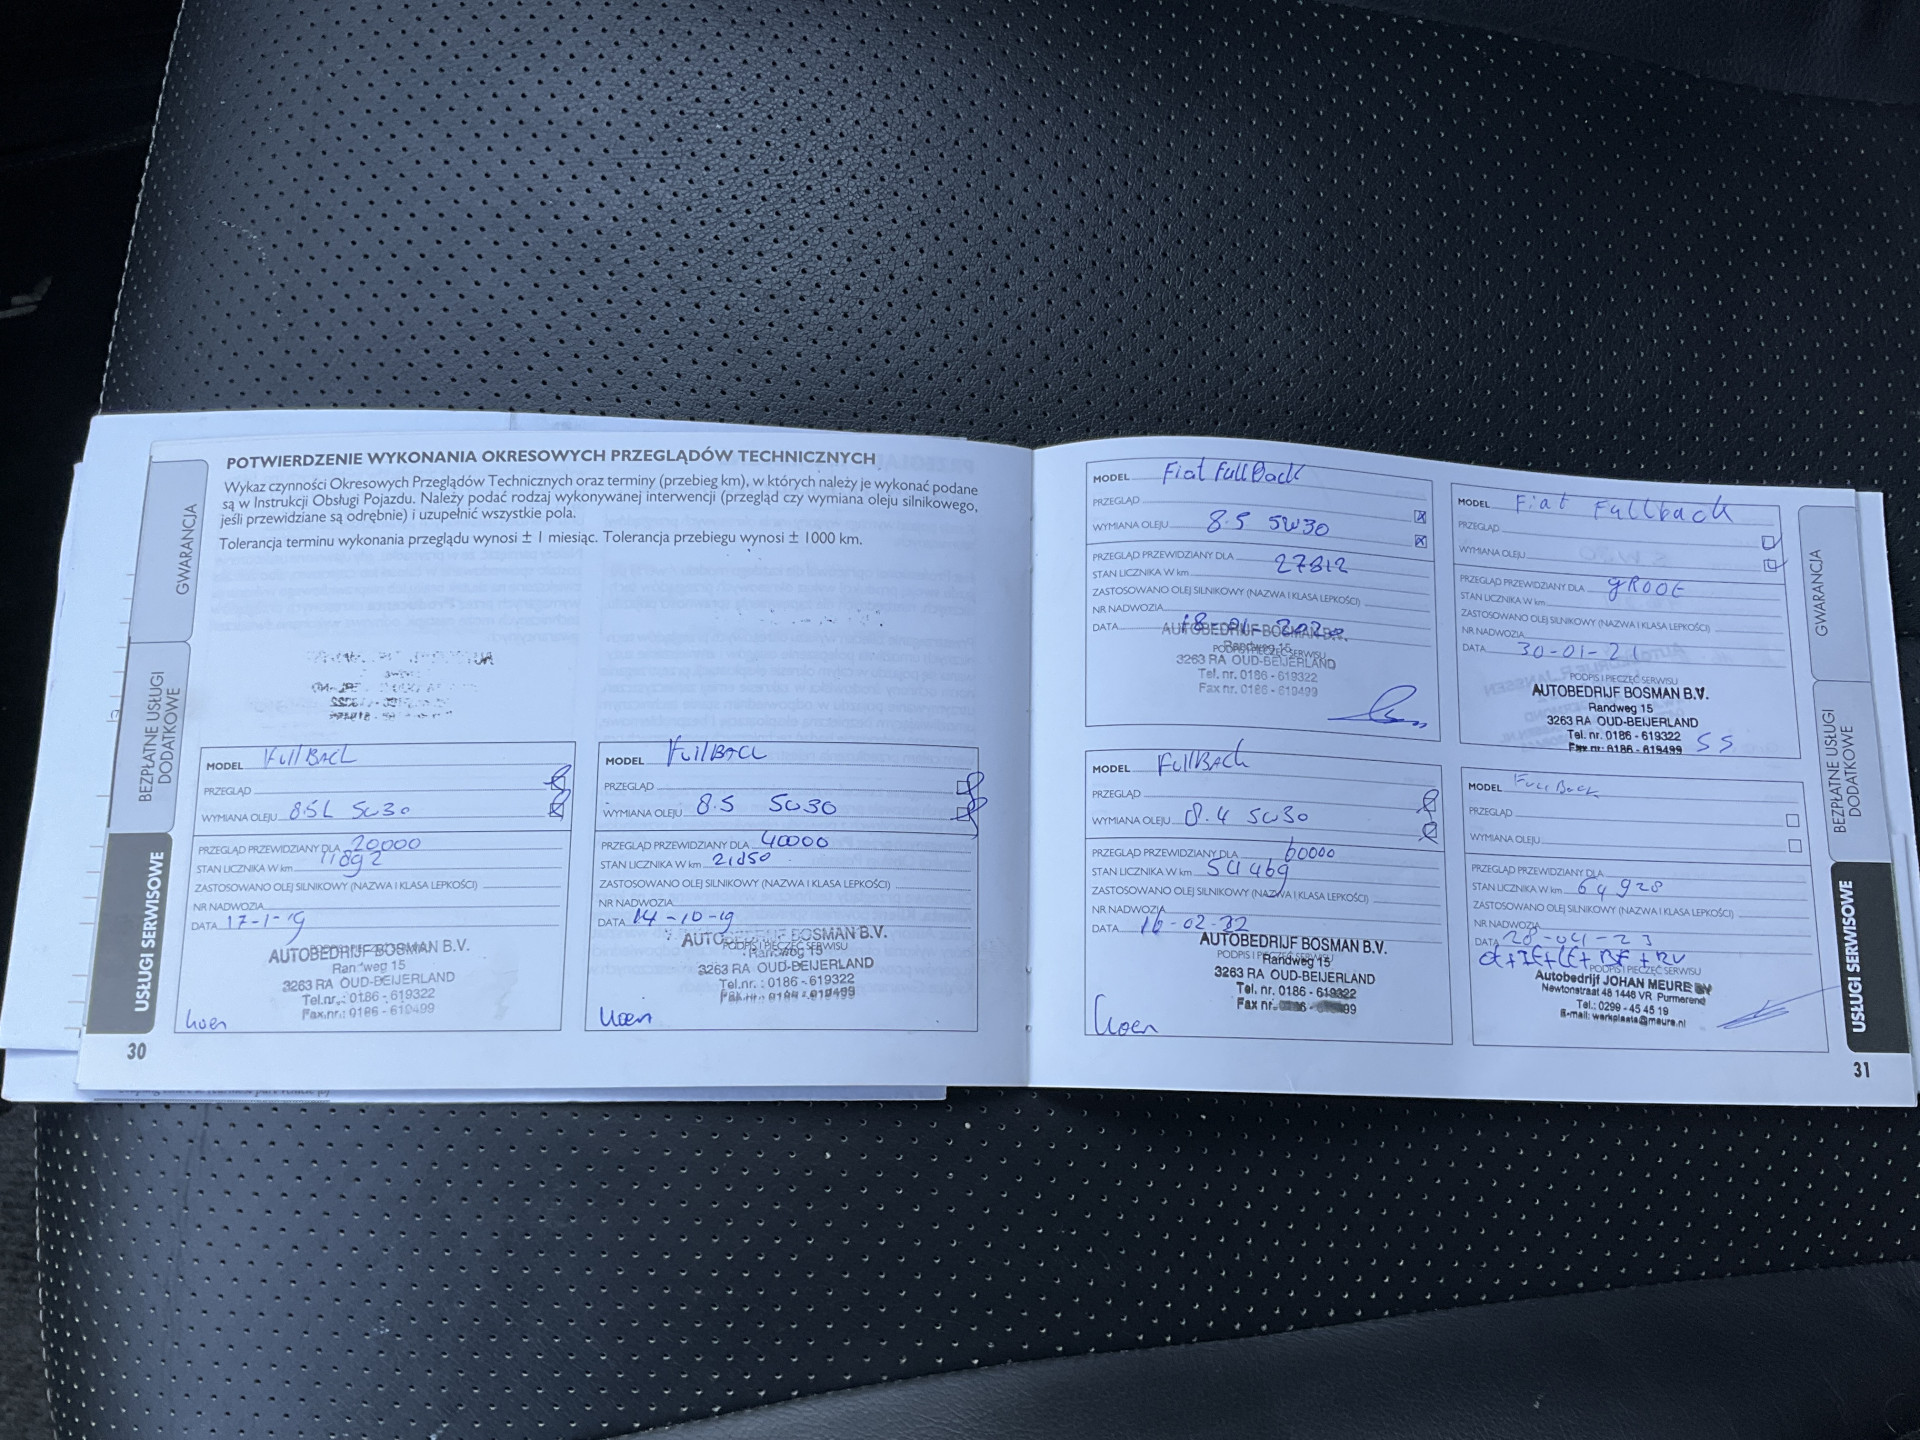 POTWIERDZENIE WYKONANIA OKRESOWYCH PRZEGLĄDÓW TECHNICZNYCH
Wykaz czynności Okresowych Przeglądów Technicznych oraz terminy (przebieg km), w których należy je wykonać podane
są w Instrukcji Obsługi Pojazdu. Należy podać rodzaj wykonywanej interwencji (przegląd czy wymiana oleju silnikowego,
jeśli przewidziane są odrębnie) i uzupełnić wszystkie pola.
Tolerancja terminu wykonania przeglądu wynosi ± 1 miesiąc. Tolerancja przebiegu wynosi ± 1000 km.
GWARANCJA
BEZPŁATNE USŁUGI
DODATKOWE
USŁUGI SERWISOWE
MODEL FullBACk
PRZEGLĄD
WYMIANA OLEJU 8.5L 5w30
PRZEGLĄD PRZEWIDZIANY DLA 20000
STAN LICZNIKA W km 11892
ZASTOSOWANO OLEJ SILNIKOWY (NAZWA I KLASA LEPKOŚCI)
NR NADWOZIA
DATA 17-1-19
AUTOBEDRIJF BOSMAN B.V.
Randweg 15
3263 RA OUD-BEIJERLAND
Tel.nr.: 0186 - 619322
Fax.nr.: 0186 - 619499
Koen
30
MODEL FullBACk
PRZEGLĄD
WYMIANA OLEJU 8.5 5w30
PRZEGLĄD PRZEWIDZIANY DLA 40000
STAN LICZNIKA W km 21050
ZASTOSOWANO OLEJ SILNIKOWY (NAZWA I KLASA LEPKOŚCI)
NR NADWOZIA
DATA 14-10-19
AUTOBEDRIJF BOSMAN B.V.
PODPIS I PIECZĘĆ SERWISU
Randweg 15
3263 RA OUD-BEIJERLAND
Tel.nr.: 0186 - 619322
Fax.nr.: 0186 - 619499
Koen
MODEL Fiat FullBack
PRZEGLĄD
WYMIANA OLEJU 8.5 5W30
PRZEGLĄD PRZEWIDZIANY DLA 27812
STAN LICZNIKA W km
ZASTOSOWANO OLEJ SILNIKOWY (NAZWA I KLASA LEPKOŚCI)
NR NADWOZIA
DATA 18-01-2020
AUTOBEDRIJF BOSMAN B.V.
PODPIS I PIECZĘĆ SERWISU
Randweg 15
3263 RA OUD-BEIJERLAND
Tel. nr. 0186 - 619322
Fax nr. 0186 - 619499
MODEL Fiat Fullback
PRZEGLĄD
WYMIANA OLEJU
PRZEGLĄD PRZEWIDZIANY DLA gROOt
STAN LICZNIKA W km
ZASTOSOWANO OLEJ SILNIKOWY (NAZWA I KLASA LEPKOŚCI)
NR NADWOZIA
DATA 30-01-21
PODPIS I PIECZĘĆ SERWISU
AUTOBEDRIJF BOSMAN B.V.
Randweg 15
3263 RA OUD-BEIJERLAND
Tel. nr. 0186 - 619322
Fax nr. 0186 - 619499
SS
MODEL FullBAck
PRZEGLĄD
WYMIANA OLEJU 8.4 5w30
PRZEGLĄD PRZEWIDZIANY DLA 60000
STAN LICZNIKA W km
ZASTOSOWANO OLEJ SILNIKOWY (NAZWA I KLASA LEPKOŚCI)
NR NADWOZIA
DATA 16-02-22
AUTOBEDRIJF BOSMAN B.V.
PODPIS I PIECZĘĆ SERWISU
Randweg 15
3263 RA OUD-BEIJERLAND
Tel. nr. 0186 - 619322
Fax nr.
Koen
MODEL FullBack
PRZEGLĄD
WYMIANA OLEJU
PRZEGLĄD PRZEWIDZIANY DLA
STAN LICZNIKA W km 64928
ZASTOSOWANO OLEJ SILNIKOWY (NAZWA I KLASA LEPKOŚCI)
NR NADWOZIA
DATA 28-04-23
PODPIS I PIECZĘĆ SERWISU
Autobedrijf JOHAN MEURE BV
Newtonstraat 48 1446 VR Purmerend
Tel.: 0299 - 45 45 19
E-mail: werkplaats@meure.nl
GWARANCJA
BEZPŁATNE USŁUGI
DODATKOWE
USŁUGI SERWISOWE
31